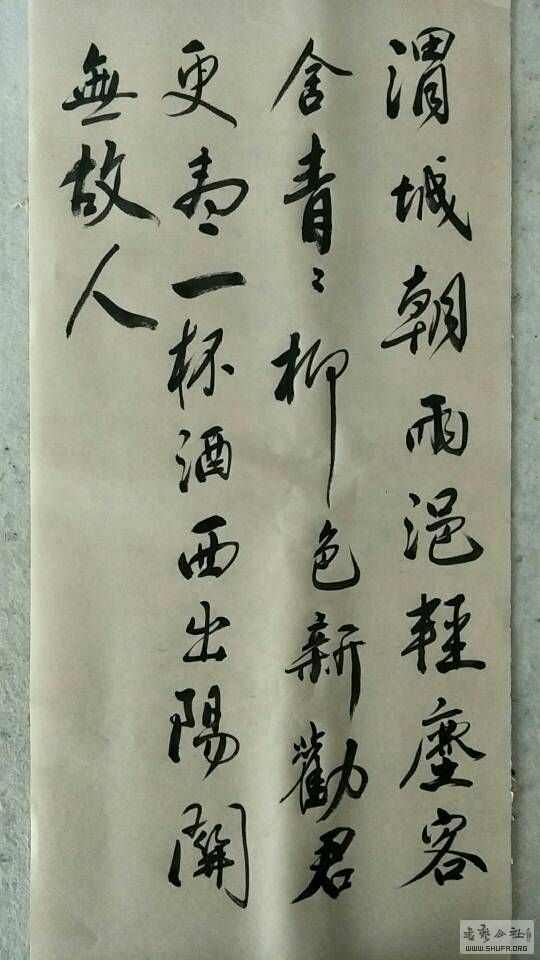 渭城朝雨浥輕塵客
舍青〻柳色新勸君
更盡一杯酒西出陽關
無故人
WWW.SHUFA.ORG